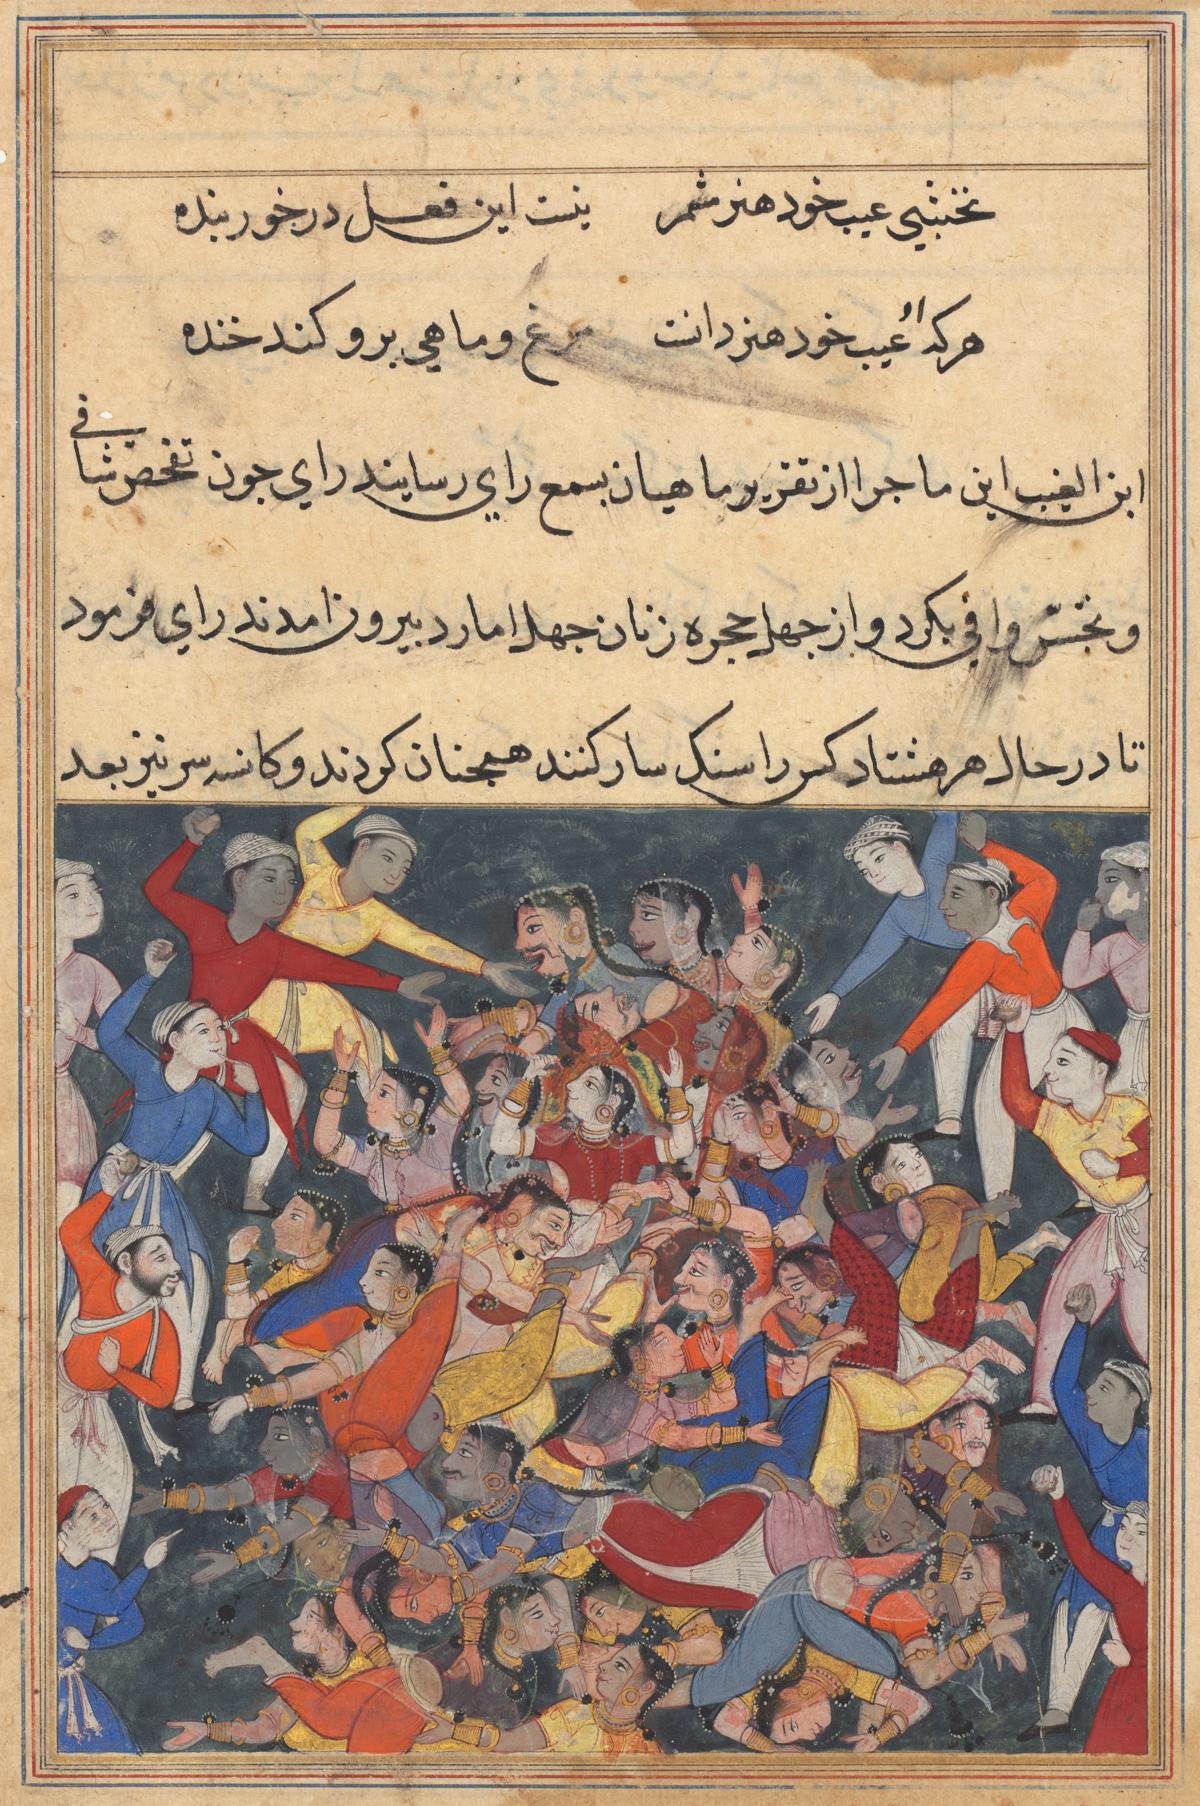 نخشبی عیب خود هنر مشمر نیست این فعل در خور بنده
هرکه او عیب خود هنر دانست مرغ و ماهی برو کنند خنده
ابن الغیب این ماجرا از تقریر ماهیان بسمع رای رسانید رای جون تفحص شافی
و تجسّس وافی بکرد و از جهل حجره زنان جهل امارد بیرون امدند رای فرمود
تا در حال هر هشتاد کس را سنک سار کنند همجنان کردند و کاسه سر نیز بعد